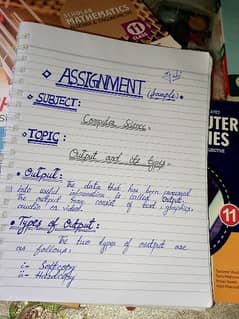 SCHOLAR
MATHEMATICS
11
ASSIGNMENT
(Sample)
SUBJECT:
Computer Science
TOPIC:
Output and its types
Output:
The data that has been processed
into useful information is called output.
The output may consist of text, graphics,
audio or video.
Types of Output:
The two types of output are
as follows:
i:- Softcopy
ii:- Hardcopy
UTER
IES
11